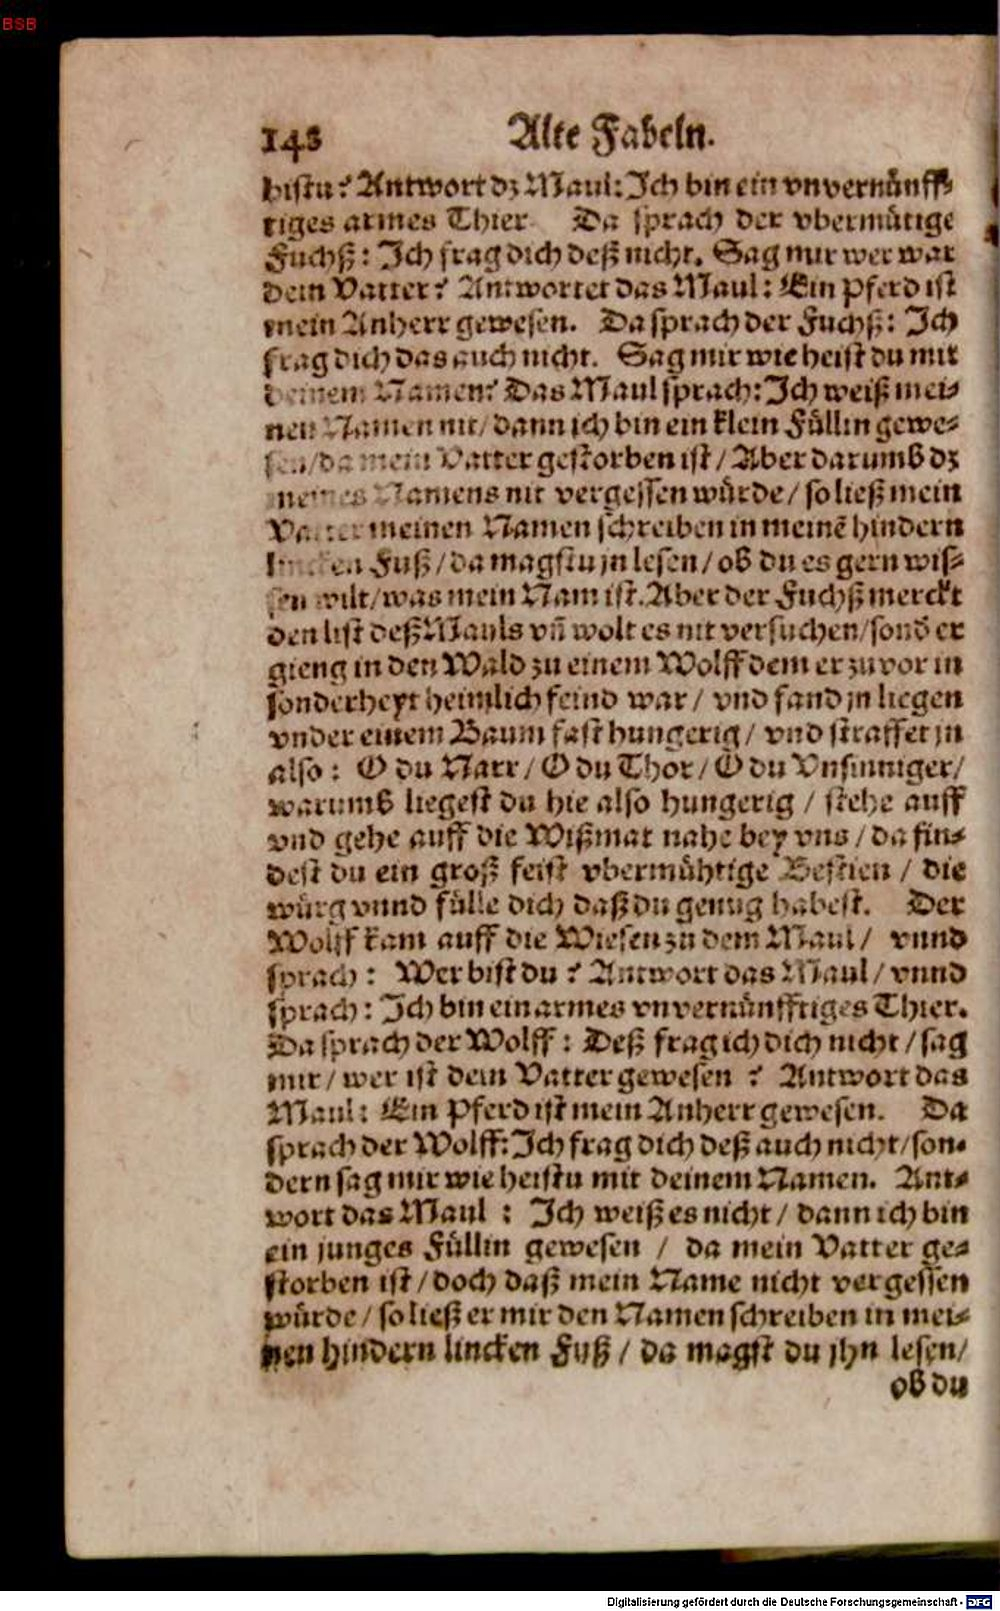 BSB
148 Alte Fabeln.
bistu? Antwort dz Maul: Ich bin ein vnvernünff⸗
tiges armes Thier. Da sprach der vbermütige
Fuchß: Ich frag dich deß nicht. Sag mir wer war
dein Vatter? Antwortet das Maul: Ein Pferd ist
mein Anherr gewesen. Da sprach der Fuchß: Ich
frag dich das auch nicht. Sag mir wie heist du mit
deinem Namen? Das Maul sprach: Ich weiß mei⸗
nen Namen nit/ dann ich bin ein klein Füllin gewe⸗
sen/ da mein Vatter gestorben ist/ Aber darumb dz
meines Namens nit vergessen würde/ so ließ mein
Vatter meinen Namen schreiben in meinẽ hindern
lincken Fuß/ da magstu jn lesen/ ob du es gern wis⸗
sen wilt/ was mein Nam ist. Aber der Fuchß merckt
den list deß Mauls vñ wolt es nit versuchen/ sond̃ er
gieng in den Wald zu einem Wolff dem er zuvor in
sonderheyt heimlich feind war/ vnd fand jn liegen
vnder einem Baum fast hungerig/ vnd straffet jn
also: O du Narr/ O du Thor/ O du Vnsinniger/
warumb liegest du hie also hungerig/ stehe auff
vnd gehe auff die Wißmat nahe bey vns/ da fin⸗
dest du ein groß feist vbermühtige Bestien/ die
würg vnnd fülle dich daß du genug habest. Der
Wolff kam auff die Wiesen zu dem Maul/ vnnd
sprach: Wer bist du? Antwort das Maul/ vnnd
sprach: Ich bin ein armes vnvernünfftiges Thier.
Da sprach der Wolff: Deß frag ich dich nicht/ sag
mir/ wer ist dein Vatter gewesen? Antwort das
Maul: Ein Pferd ist mein Anherr gewesen. Da
sprach der Wolff: Ich frag dich deß auch nicht/ son⸗
dern sag mir wie heistu mit deinem Namen. Ant⸗
wort das Maul: Ich weiß es nicht/ dann ich bin
ein junges Füllin gewesen/ da mein Vatter ge⸗
storben ist/ doch daß mein Name nicht vergessen
würde/ so ließ er mir den Namen schreiben in mei⸗
nen hindern lincken Fuß/ da magst du jhn lesen/
ob du
Digitalisierung gefördert durch die Deutsche Forschungsgemeinschaft - DFG